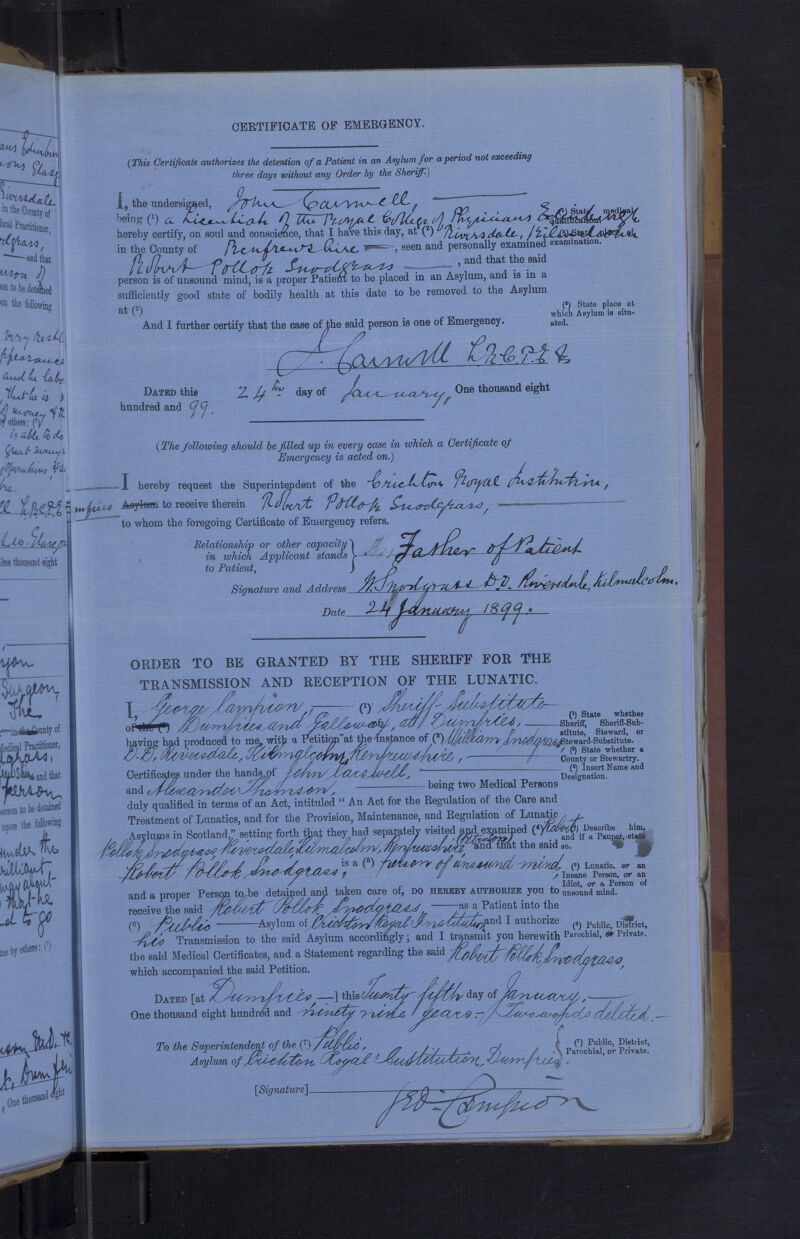 CERTIFICATE OF EMERGENCY.
(This Certificate authorizes the detention of a Patient in an Asylum for a period not exceeding
three days without any Order by the Sheriff.)
I, the undersigned, John Carswell,
being (¹) a Licentiate of the Royal College of Physicians Edinburgh
(¹) State medical
qualification
hereby certify, on soul and conscience, that I have this day, at (²) Riversdale, Kilmalcolm
in the County of Renfrewshire, seen and personally examined
examination.
Robert Pollok Snodgrass, and that the said
person is of unsound mind, is a proper Patient to be placed in an Asylum, and is in a
sufficiently good state of bodily health at this date to be removed to the Asylum
at (³)
(³) State place at
which Asylum is situ-
ated.
And I further certify that the case of the said person is one of Emergency.
J. Carswell L.R.C.P.E &
DATED this 24th day of January, One thousand eight
hundred and 99.
(The following should be filled up in every case in which a Certificate of
Emergency is acted on.)
I hereby request the Superintendent of the Crichton Royal Institution,
Dumfries Asylum to receive therein Robert Pollok Snodgrass,
to whom the foregoing Certificate of Emergency refers.
Relationship or other capacity
in which Applicant stands
to Patient,
Father of Patient
Signature and Address W. Snodgrass D.D. Riversdale, Kilmalcolm.
Date 24 January 1899.
ORDER TO BE GRANTED BY THE SHERIFF FOR THE
TRANSMISSION AND RECEPTION OF THE LUNATIC.
I, George Campion, (¹) Sheriff-Substitute
of the (²) Dumfries and Galloway, at Dumfries,
(¹) State whether
Sheriff, Sheriff-Sub-
stitute, Steward, or
Steward-Substitute.
having had produced to me, with a Petition at the instance of (³) William Snodgrass
(²) State whether a
County or Stewartry.
D.D. Riversdale, Kilmalcolm, Renfrewshire,
(³) Insert Name and
Designation.
Certificates under the hands of John Carswell,
and Alexander Thomson, being two Medical Persons
duly qualified in terms of an Act, intituled "An Act for the Regulation of the Care and
Treatment of Lunatics, and for the Provision, Maintenance, and Regulation of Lunatic
Asylums in Scotland," setting forth that they had separately visited and examined (⁴) Robert
(⁴) Describe him,
and if a Pauper, state
so.
Pollok Snodgrass, Riversdale, Kilmalcolm, Renfrewshire and that the said
Robert Pollok Snodgrass, is a (⁵) person of unsound mind,
(⁵) Lunatic, or an
Insane Person, or an
Idiot, or a Person of
unsound mind.
and a proper Person to be detained and taken care of, DO HEREBY AUTHORIZE YOU to
receive the said Robert Pollok Snodgrass as a Patient into the
(⁶) Public Asylum of Crichton Royal Institution and I authorize
(⁶) Public, District,
Parochial, or Private.
his Transmission to the said Asylum accordingly; and I transmit you herewith
the said Medical Certificates, and a Statement regarding the said Robert Pollok Snodgrass,
which accompanied the said Petition.
DATED [at Dumfries,] this Twenty fifth day of January,
One thousand eight hundred and ninety nine years. Two words deleted.
To the Superintendent of the (⁷) Public,
Asylum of Crichton Royal Institution, Dumfries.
(⁷) Public, District,
Parochial, or Private.
[Signature] Geo. Campion